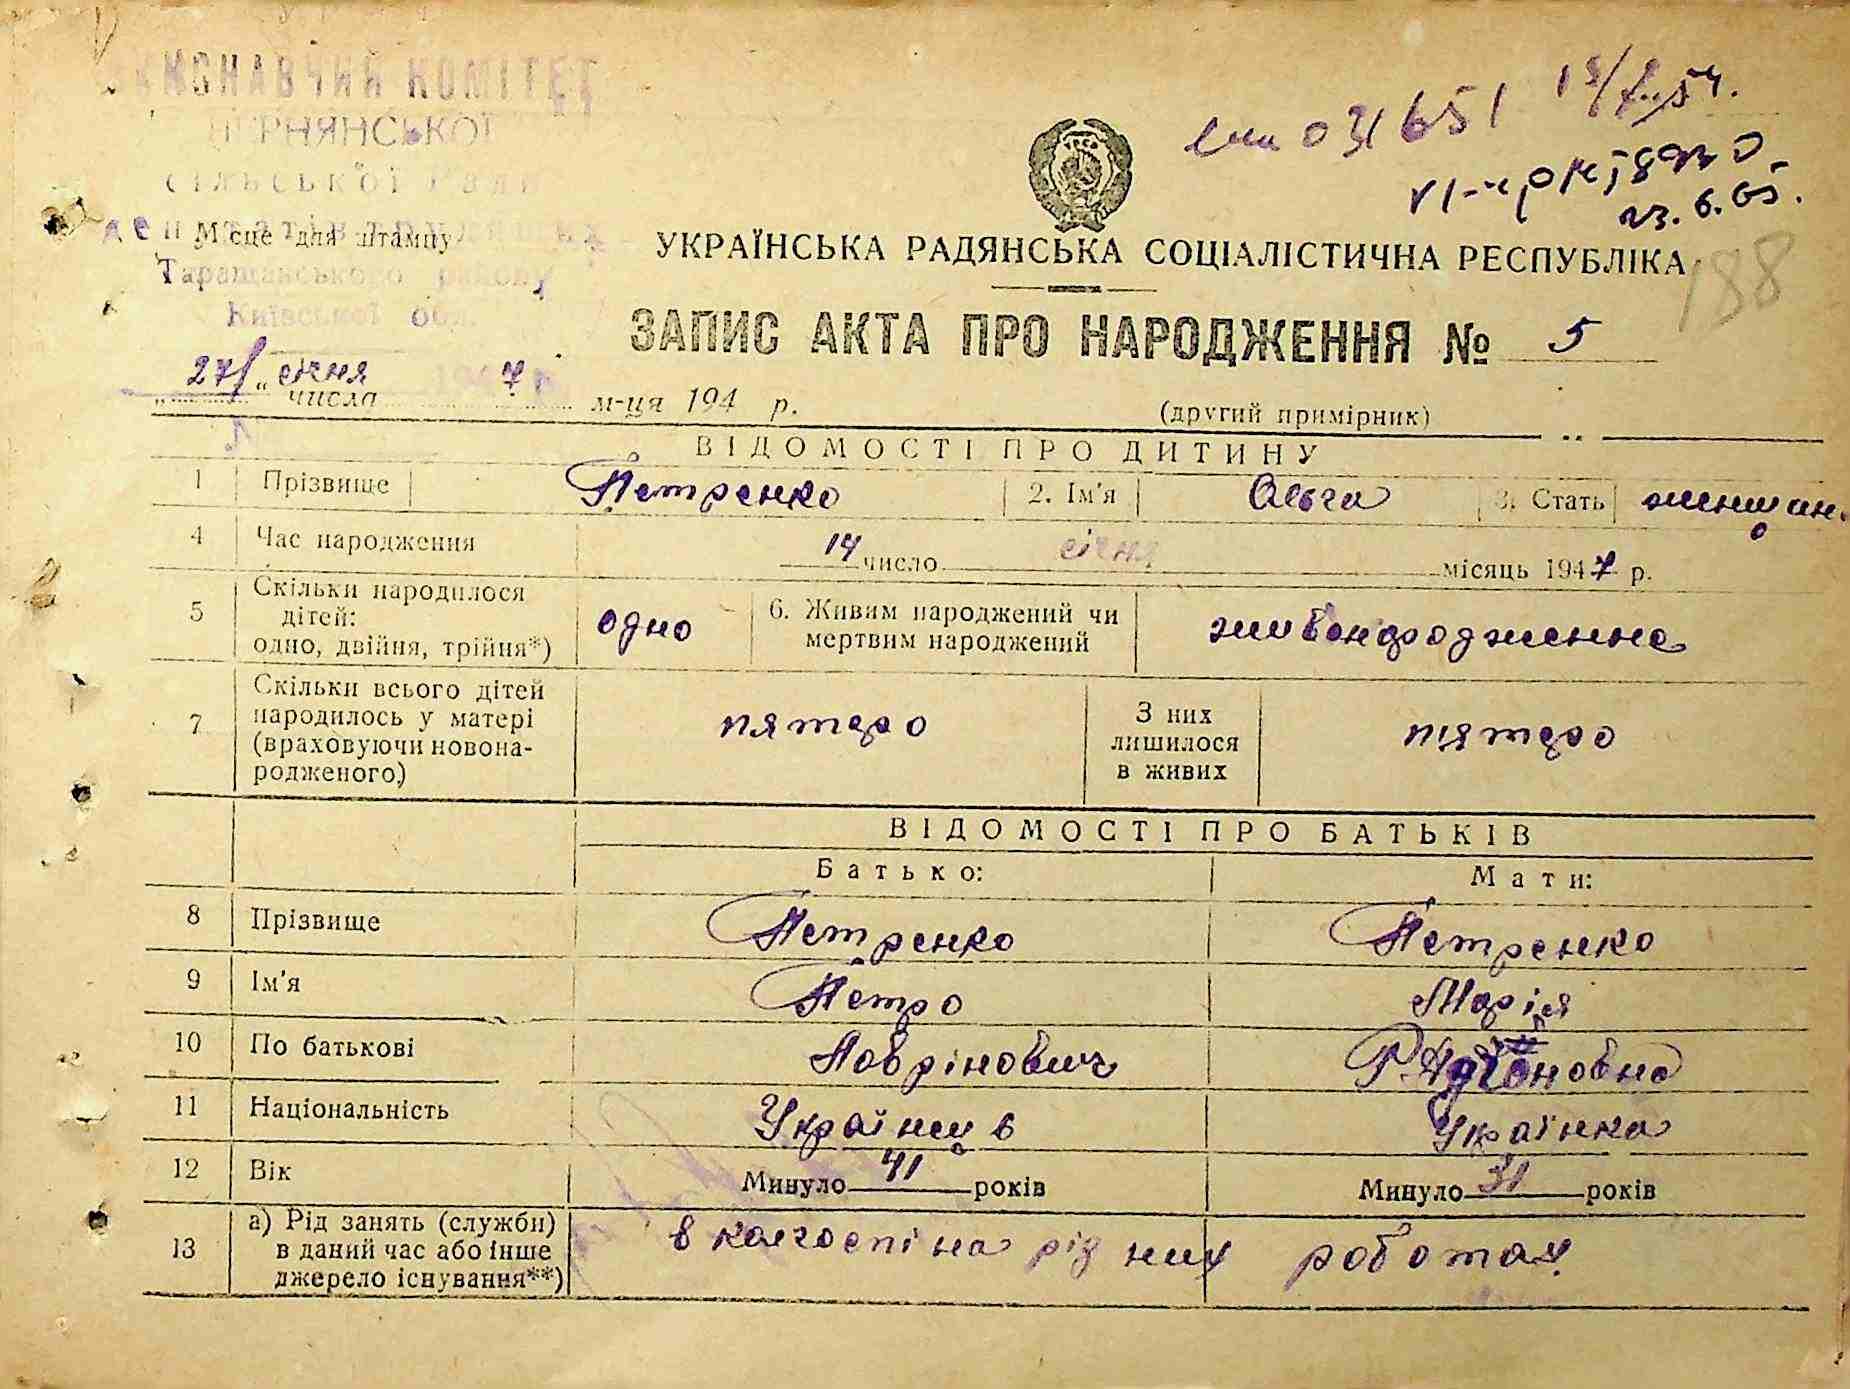 ВИКОНАВЧИЙ КОМІТЕТ
ЧЕРНЯНСЬКОЇ
сільської Ради
Місце для штампу
Таращанського району
Київської обл.
27/ січня 1947 р.
" " числа м-ця 194 р.
031651
23.6.65.
188
УКРАЇНСЬКА РАДЯНСЬКА СОЦІАЛІСТИЧНА РЕСПУБЛІКА
ЗАПИС АКТА ПРО НАРОДЖЕННЯ № 5
(другий примірник)
ВІДОМОСТІ ПРО ДИТИНУ
1 Прізвище Петренко 2. Ім'я Ольга 3. Стать
4 Час народження 14 число січня місяць 1947 р.
5 Скільки народилося дітей: одно, двійня, трійня*) одно 6. Живим народжений чи мертвим народжений живонародженна
7 Скільки всього дітей народилось у матері (враховуючи новонародженого) пятеро З них лишилося в живих пятеро
ВІДОМОСТІ ПРО БАТЬКІВ
Батько: Мати:
8 Прізвище Петренко Петренко
9 Ім'я Петро Марія
10 По батькові Лаврінович
11 Національність Українець Українка
12 Вік Минуло 41 років Минуло 31 років
13 а) Рід занять (служби) в даний час або інше джерело існування**) в колгоспі на рід них роботах.